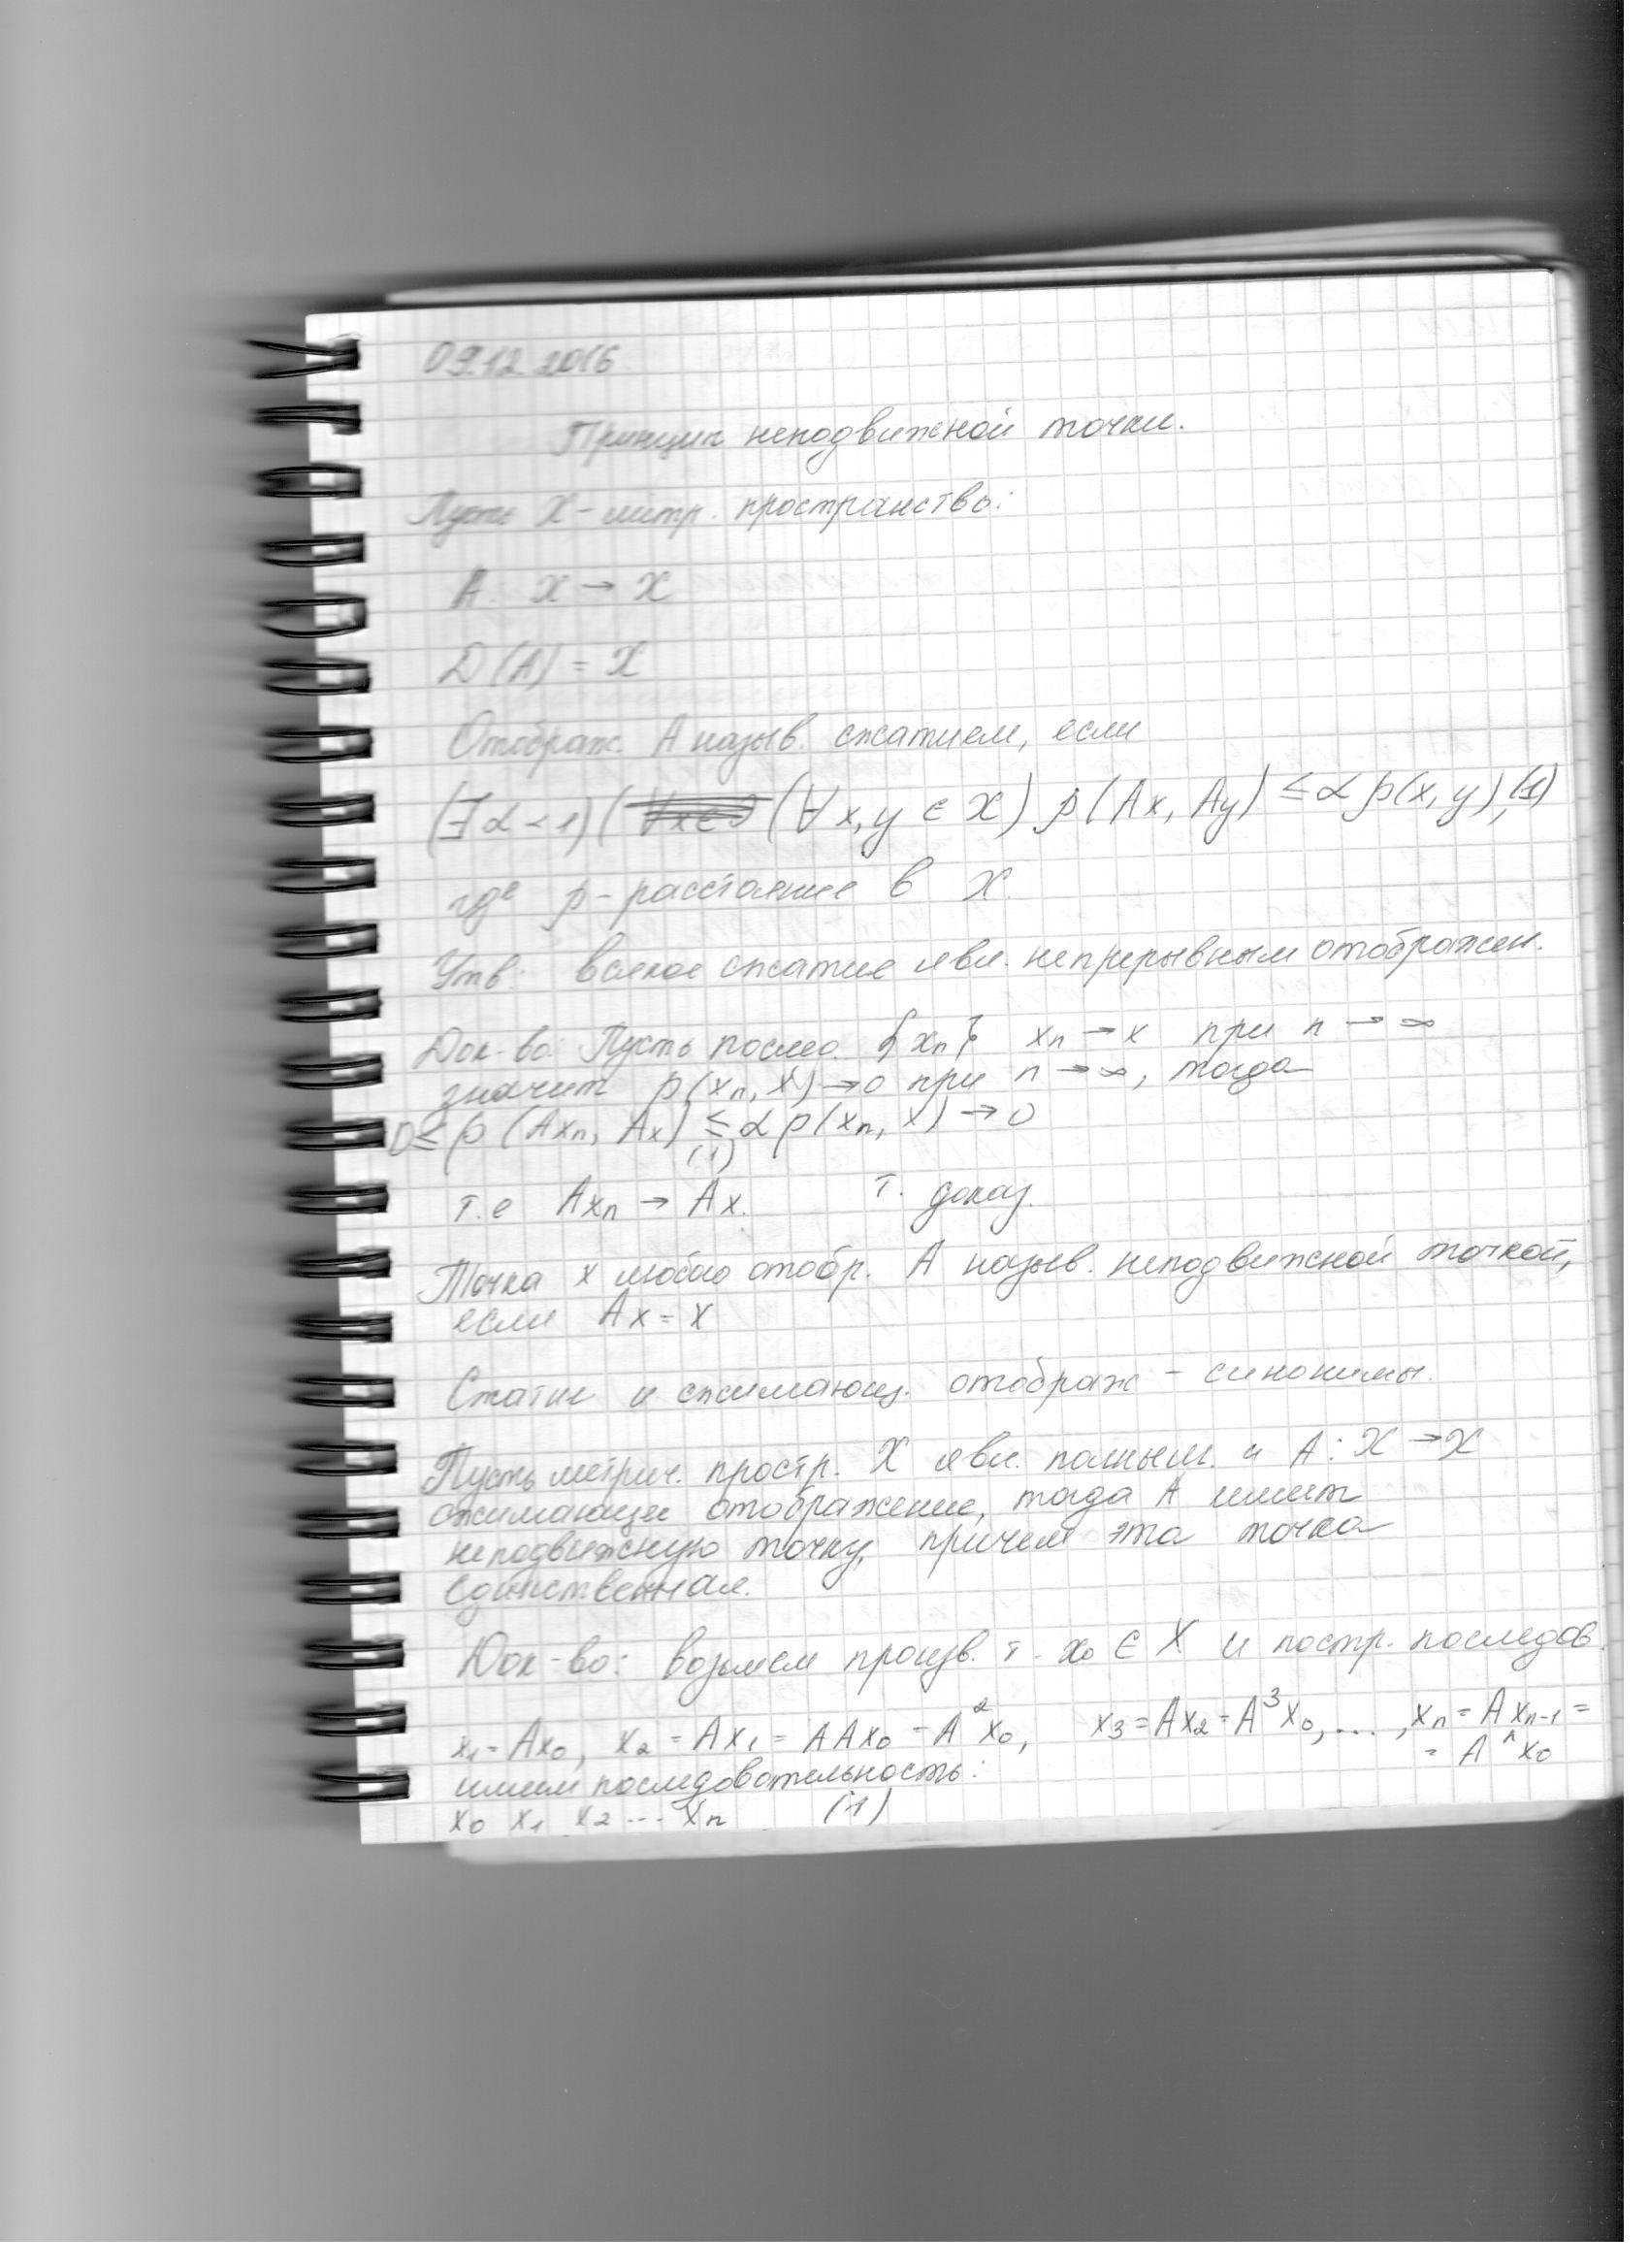 09.12.2016.
Принцип неподвижной точки.
Пусть X - метр. пространство:
A: X → X
D(A) = X
Отображ. A назыв. сжатием, если
(∃α<1)( (∀x,y ∈ X) ρ(Ax, Ay) ≤ α ρ(x,y), (1)
где ρ - расстояние в X.
Утв: всякое сжатие явл. непрерывным отображен.
Док-во: Пусть послед. {xₙ} xₙ → x при n → ∞
значит ρ(xₙ, x) → 0 при n → ∞, тогда
0 ≤ ρ(Axₙ, Ax) ≤ α ρ(xₙ, x) → 0
(1)
т.е Axₙ → Ax. т. доказ.
Точка x любого отобр. A назыв. неподвижной точкой,
если Ax = x
Сжатие и сжимающ. отображ - синонимы.
Пусть метрич. простр. X явл. полным и A: X → X
сжимающее отображение, тогда A имеет
неподвижную точку, причем эта точка
единственная.
Док-во: возьмем произв. т. x₀ ∈ X и постр. последов.
x₁ = Ax₀, x₂ = Ax₁ = AAx₀ = A²x₀, x₃ = Ax₂ = A³x₀, ..., xₙ = Axₙ₋₁ =
= Aⁿx₀
имеем последовательность:
x₀ x₁ x₂ ... xₙ (1)